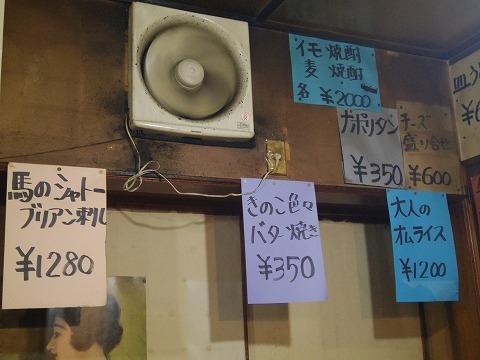 イモ焼酎
麦焼酎
各¥2000
ナポリタン
¥350
チーズ
盛り合せ
¥600
馬のシャトー
ブリアン刺し
¥1280
きのこ色々
バター焼き
¥350
大人の
オムライス
¥1200
皿う